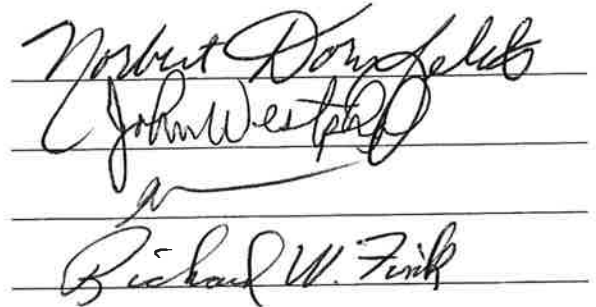 Norbert Dornfeld
John Westphal
Richard W. Fink